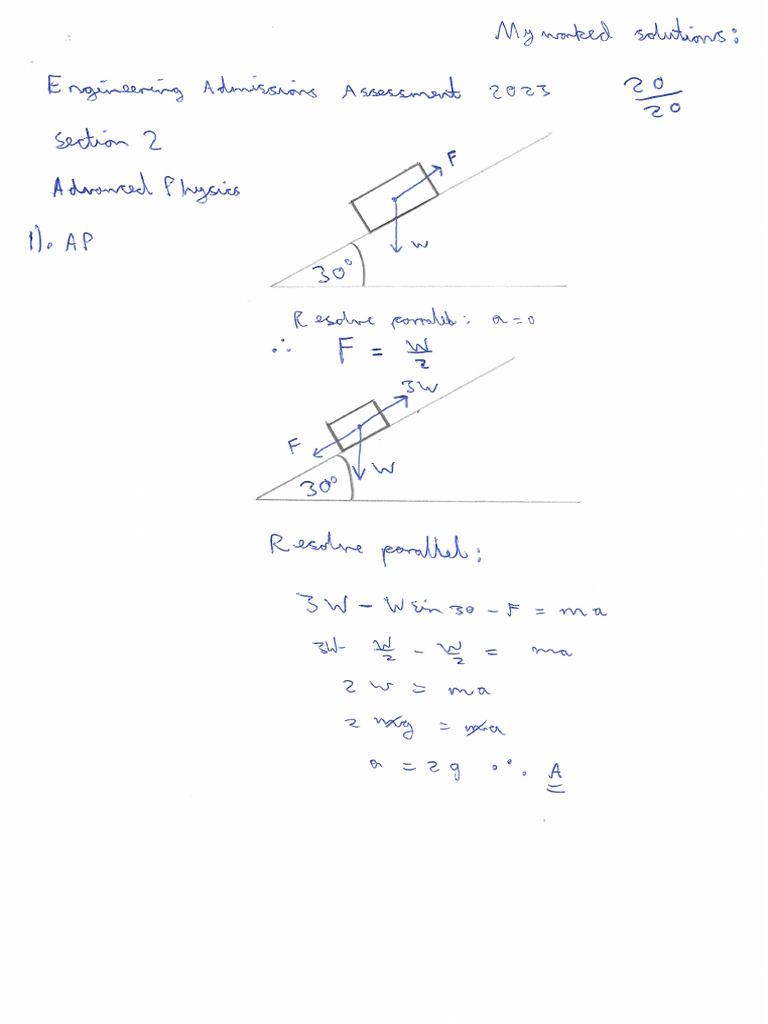 My worked solutions:
Engineering Admissions Assessment 2023 20/20
Section 2
Advanced Physics
1). AP
F
W
30°
Resolve parallel: a=0
∴ F = W/2
3W
F
W
30°
Resolve parallel:
3W - W sin 30 - F = ma
3W - W/2 - W/2 = ma
2W = ma
2mg = ma
a = 2g ∴ A